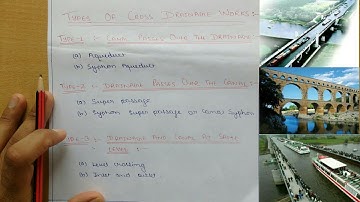 TYPES OF CROSS DRAINAGE WORKS:
TYPE-1 :- CANAL PASSES OVER THE DRAINAGE
(a) Aqueduct
(b) Syphon Aqueduct
TYPE-2 :- DRAINAGE PASSES OVER THE CANAL:
(a) Super passage
(b) Syphon super passage or Canal Syphon
TYPE-3 :- DRAINAGE AND CANAL AT SAME
LEVEL :-
(a) Level crossing
(b) Inlet and outlet